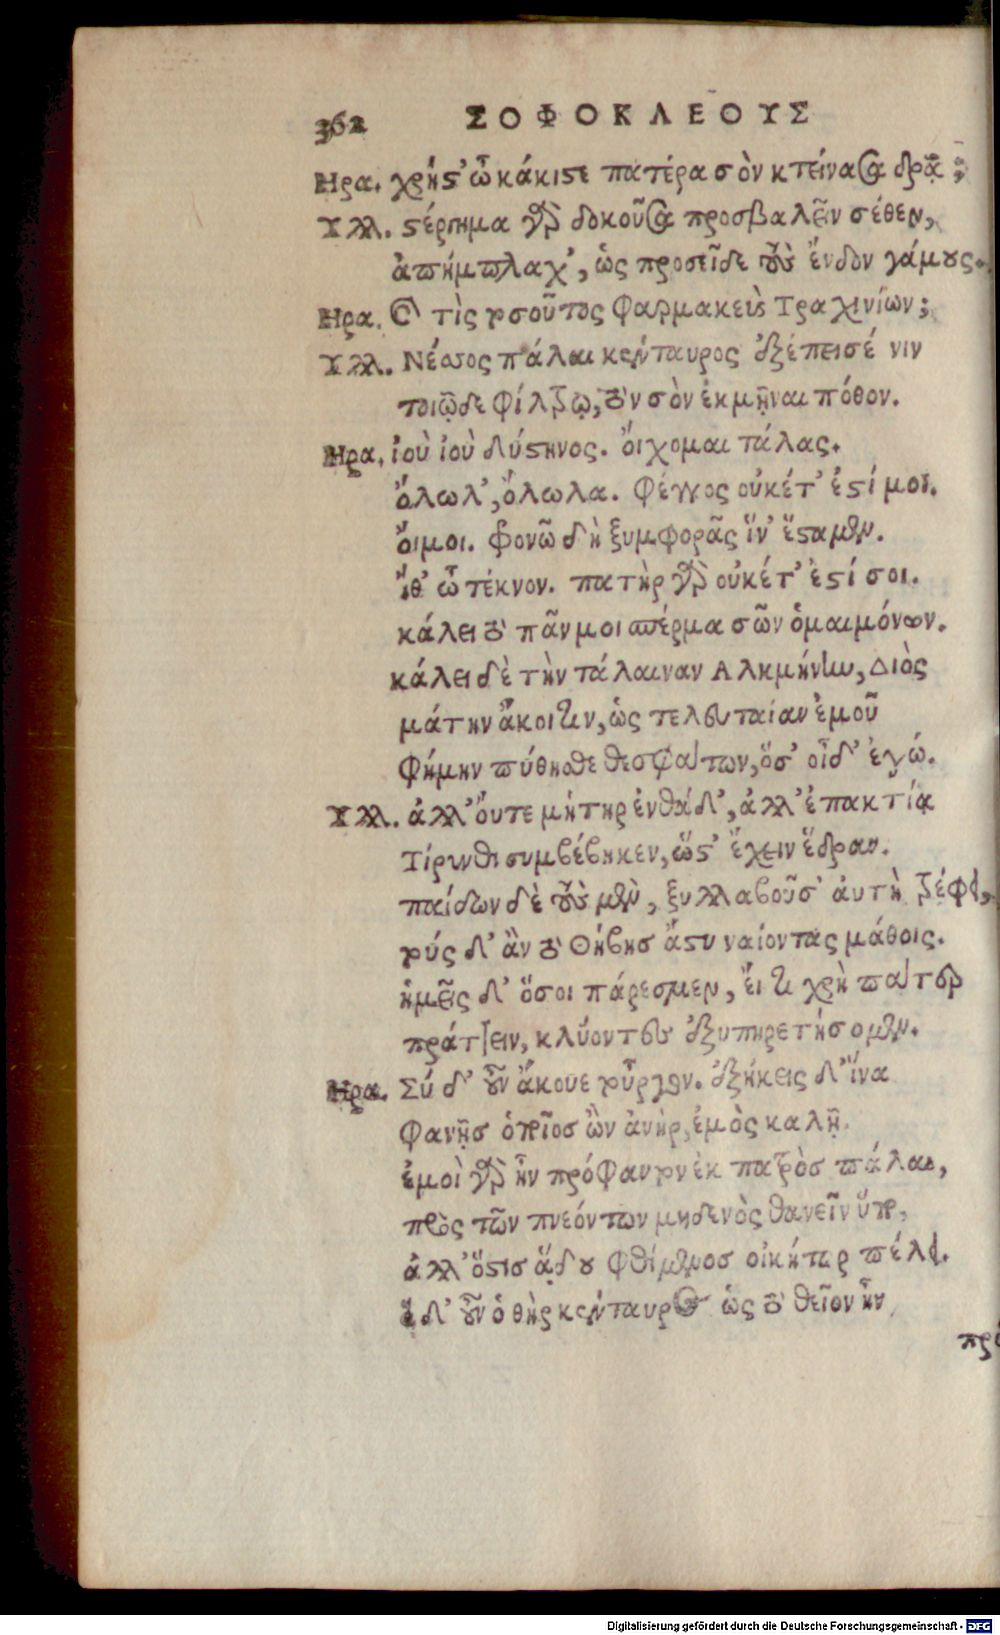 362 ΣΟΦΟΚΛΕΟΥΣ
Ηρα. χρής' ὦ κάκιςε πατέρα σὸν κτείνασα δρᾷ;
Υλλ. ςέργημα γὰρ δοκοῦσα προσβαλεῖν σέθεν,
ἀπήμπλαχ', ὡς προσεῖδε τοὺς ἔνδον γάμους.
Ηρα. Καὶ τὶς τοσοῦτος φαρμακεὺς Τραχινίων;
Υλλ. Νέσσος πάλαι κένταυρος ἐξέπεισέ νιν
τοιῷδε φίλτρῳ, τὸν σὸν ἐκμῆναι πόθον.
Ηρα. ἰοὺ ἰοὺ δύςηνος. ὄιχομαι τάλας.
ὄλωλ', ὄλωλα. φέγγος οὐκέτ' ἐςί μοι.
ὄιμοι. φονῶ δὴ ξυμφορᾶς ἵν' ἕςαμεν.
ἴθ' ὦ τέκνον. πατὴρ γὰρ οὐκέτ' ἐςί σοι.
κάλει τὸ πᾶν μοι σπέρμα σῶν ὁμαιμόνων.
κάλει δὲ τὴν τάλαιναν Αλκμήνην, Διὸς
μάτην ἄκοιτιν, ὡς τελευταίαν ἐμοῦ
φήμην πύθησθε θεσφάτων, ὅσ' οἶδ' ἐγώ.
Υλλ. ἀλλ' ὄυτε μήτηρ ἐνθάδ', ἀλλ' ἐπακτίᾳ
Τίρυνθι συμβέβηκεν, ὥς' ἔχειν ἕδραν.
παίδων δὲ τοὺς μὲν, ξυλλαβοῦσ' ἀυτὴ τρέφει,
τούς δ' ἂν τὸ Θήβησ ἄςυ ναίοντας μάθοις.
ἡμεῖς δ' ὅσοι πάρεσμεν, ἔι τι χρὴ πάτερ
πράττειν, κλύοντες ἐξυπηρετήσομεν.
Ηρα. Σύ δ' οὖν ἄκουε τοὖργον. ἐξήκεις δ' ἵνα
φανῇσ ὁποῖοσ ὢν ἀνὴρ, ἐμὸς καλῇ.
ἐμοὶ γὰρ ἦν πρόφαντον ἐκ πατρὸσ πάλαι,
πρὸς τῶν πνεόντων μηδενὸς θανεῖν ὕπο,
ἀλλ' ὅςισ ᾅδου φθίμενοσ οἰκήτωρ πέλει.
ὁ δ' οὖν ὁ θὴρ κένταυρος ὡς τὸ θεῖον ἦν
πρό
Digitalisierung gefördert durch die Deutsche Forschungsgemeinschaft - DFG